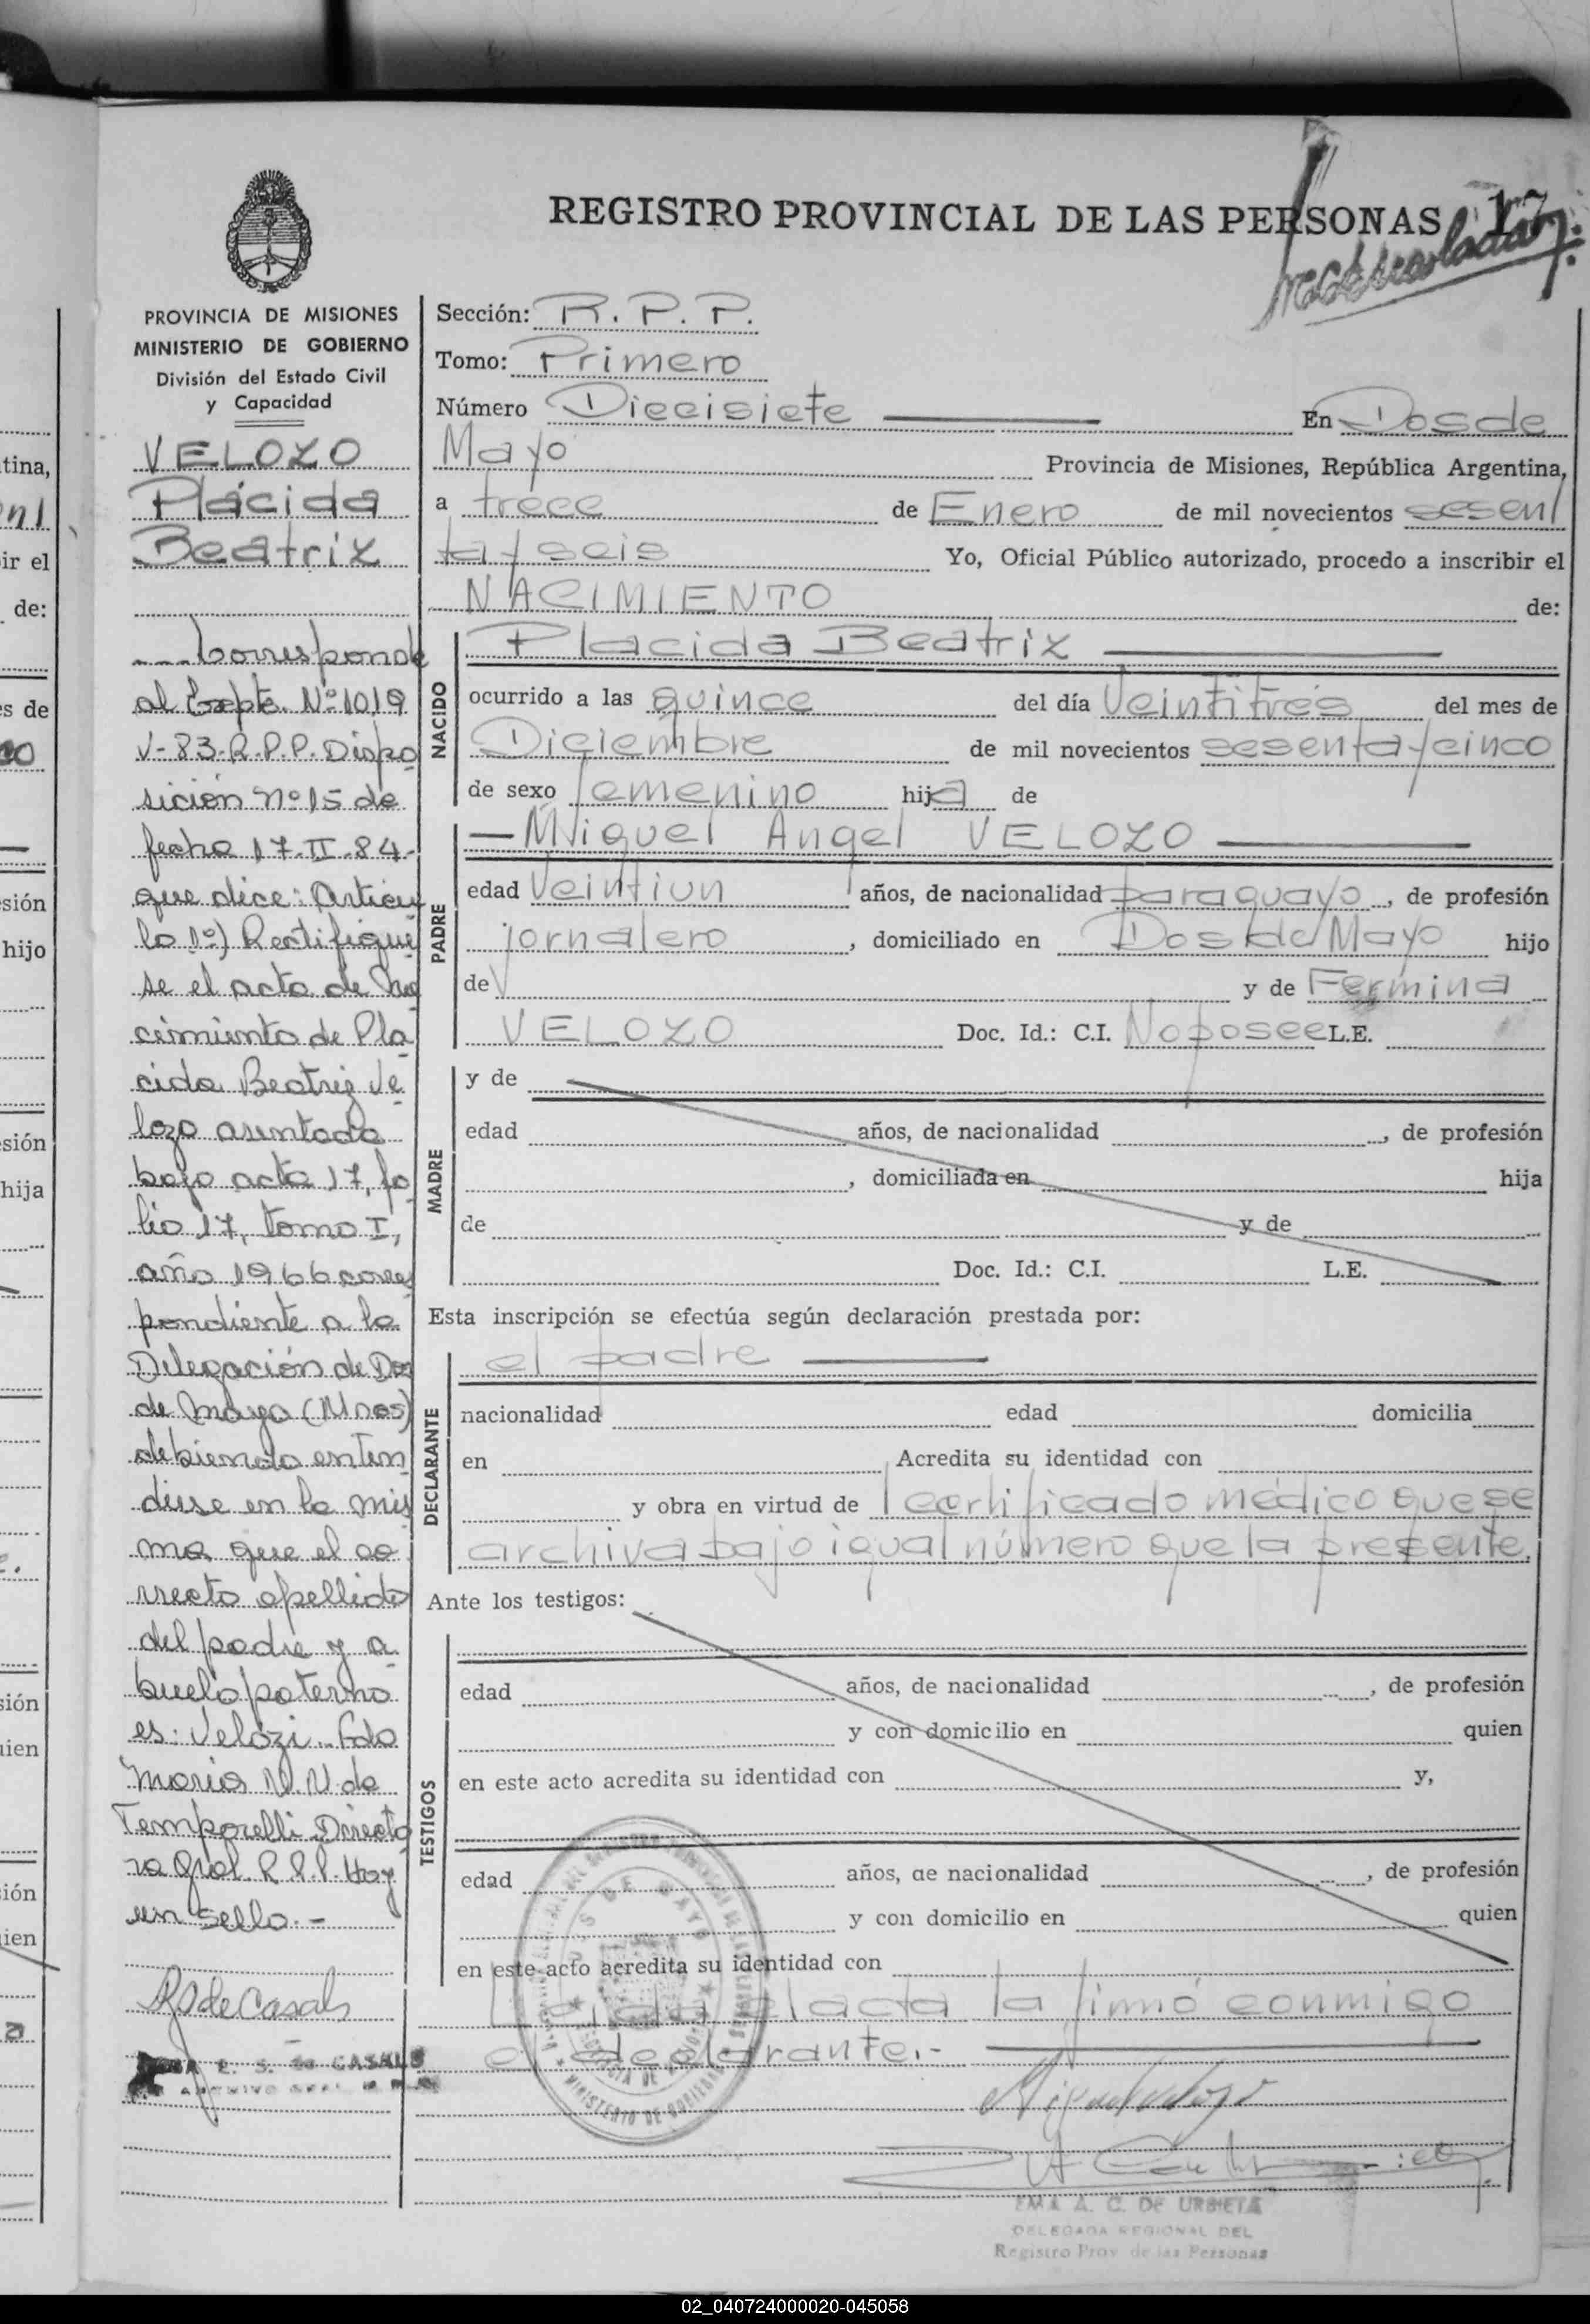 REGISTRO PROVINCIAL DE LAS PERSONAS 17
PROVINCIA DE MISIONES
MINISTERIO DE GOBIERNO
División del Estado Civil
y Capacidad
VELOZO
Plácida
Beatriz
Corresponde
al Expte. Nº 1019
V-83-R.P.P. Dispo
sición nº 15 de
fecha 17-II-84-
que dice: Artícu
lo 1º) Rectifíque
se el acta de Na
cimiento de Plá
cida Beatriz Ve
lozo asentada
bajo acta 17, fo
lio 17, tomo I,
año 1966 corres
pondiente a la
Delegación de Dos
de Mayo (Mnes)
debiendo enten
derse en la mis
ma que el co
rrecto apellido
del padre y a
buelo paterno
es: Velozi.. Fdo
Maria N.N. de
Temporelli Directo
ra Gral. R.P.P. Hay
un sello.-
E. S. de CASALS
Sección: R. P. P.
Tomo: Primero
Número Diecisiete En Dos de
Mayo Provincia de Misiones, República Argentina,
a trece de Enero de mil novecientos sesen/
ta y seis Yo, Oficial Público autorizado, procedo a inscribir el
NACIMIENTO de:
NACIDO
Placida Beatriz
ocurrido a las quince del día Veintitrés del mes de
Diciembre de mil novecientos sesenta y cinco
de sexo femenino hija de
PADRE
Miguel Angel VELOZO
edad Veintiun años, de nacionalidad paraguayo, de profesión
jornalero, domiciliado en Dos de Mayo hijo
de y de Fermina
VELOZO Doc. Id.: C.I. No posee L.E.
MADRE
y de
edad años, de nacionalidad, de profesión
, domiciliada en hija
de y de
Doc. Id.: C.I. L.E.
Esta inscripción se efectúa según declaración prestada por:
DECLARANTE
el padre
nacionalidad edad domicilia
en Acredita su identidad con
y obra en virtud de certificado médico que se
archiva bajo igual número que la presente.
Ante los testigos:
TESTIGOS
edad años, de nacionalidad, de profesión
y con domicilio en quien
en este acto acredita su identidad con y,
edad años, de nacionalidad, de profesión
y con domicilio en quien
en este acto acredita su identidad con
Leída el acta la firmó conmigo
el declarante.-
EMA A. C. DE URBIETA
DELEGADA REGIONAL DEL
Registro Prov. de las Personas
tina,
ir el
de:
s de
sión
hijo
sión
hija
sión
uien
ión
ien
02_040724000020-045058